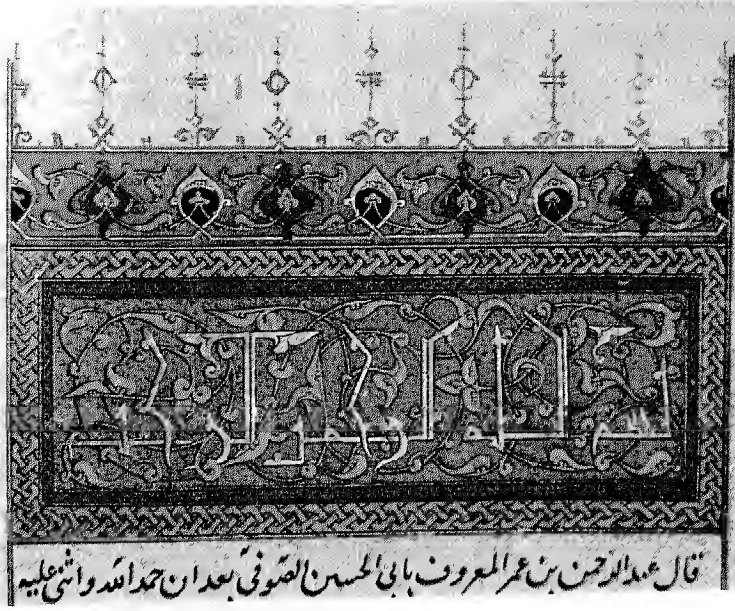 بسم الله الرحمن الرحيم
قال عبد الرحمن بن عمر المعروف بابي الحسين الصوفي بعد ان حمد الله واثنى عليه